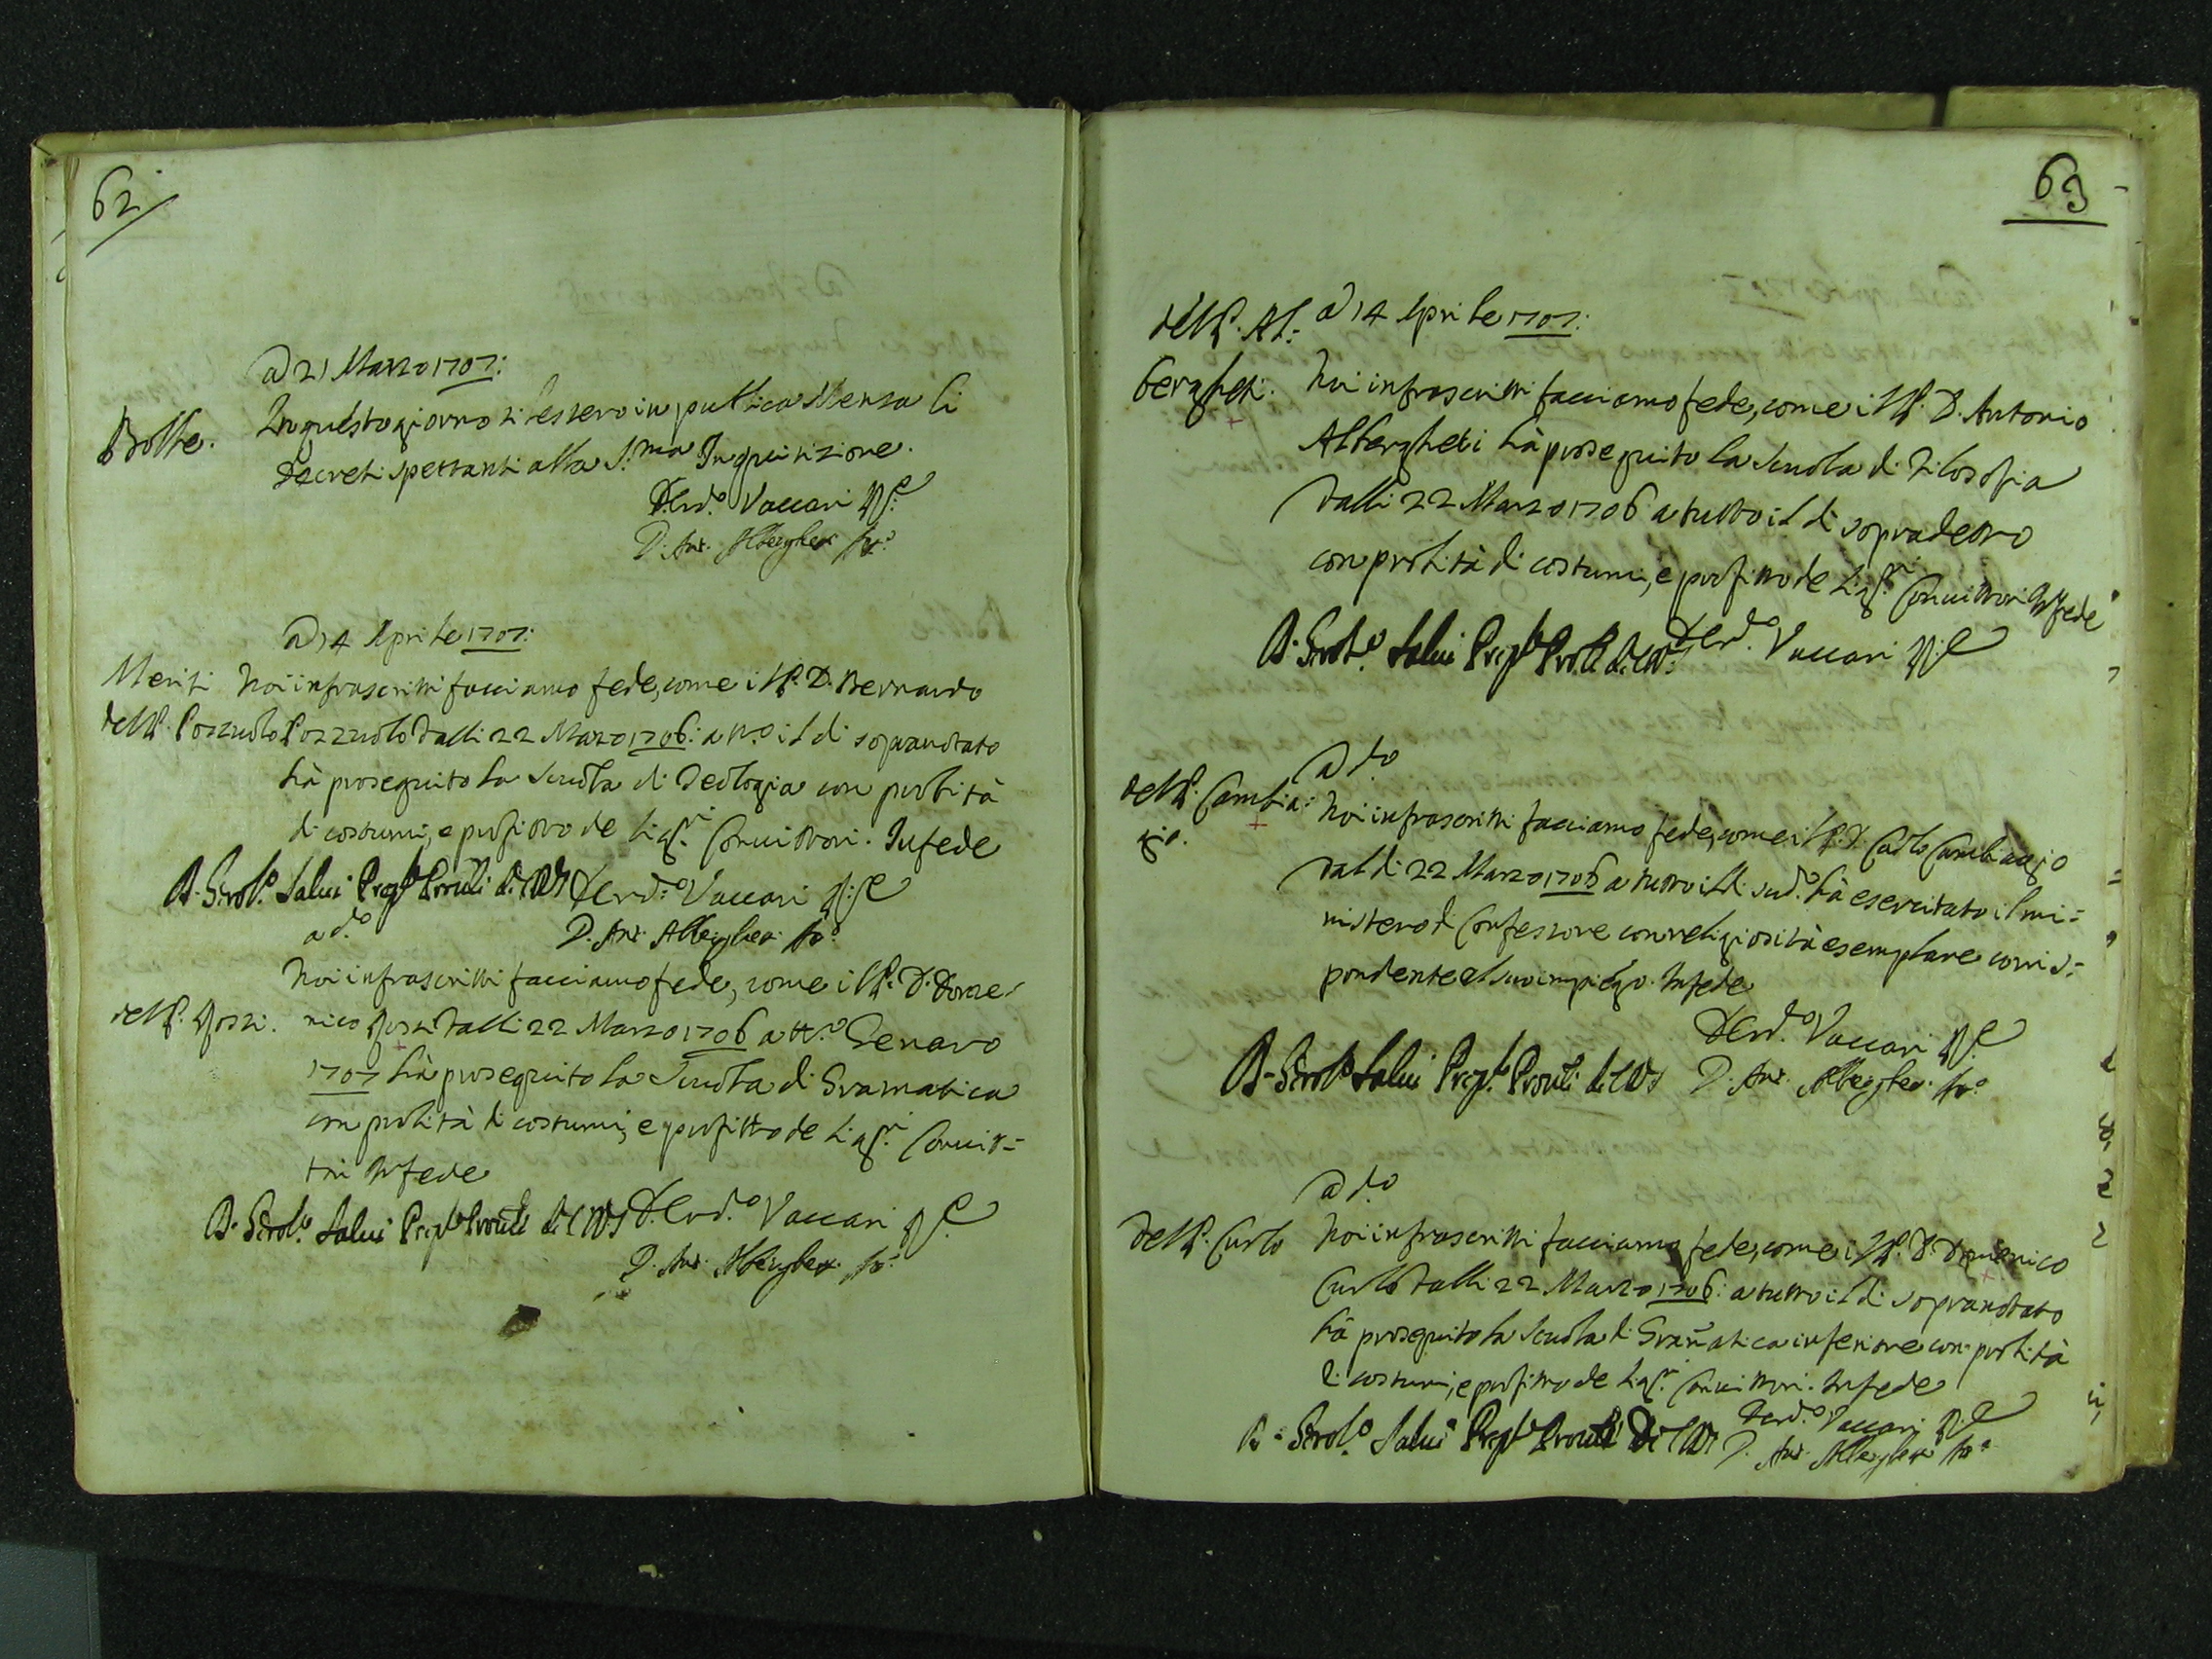 62
A dì 21 Marzo 1707:
Bolle. In questo giorno si lessero in publica Mensa li
Decreti spettanti alla S.ma Inquisizione.
D. Ferd.o Vaccari
D. Ant. Alberghe
A dì 4 Aprile 1707:
Meriti Noi infrascritti facciamo fede, come il P. D. Bernardo
del P. Pozzuolo Pozzuolo dalli 22 Marzo 1706: a il di sopranotato
hà proseguito la Scuola di Teologia con probità
di costumi, e profitto de Sig.ri Convittori. In fede
D. Girol.o Salvi Prep.to
D. Ferd.o Vaccari
a d.o
D. Ant. Alberghe
Noi infrascritti facciamo fede, come il P. D. Dome
del P. Rossi. nico Rossi dalli 22 Marzo 1706 a tt.o Genaro
1707 hà proseguito la Scuola di Gramatica
con probità di costumi, e profitto de Sig.ri Convit=
tori In fede
D. Girol.o Salvi Prep.to
D. Ferd.o Vaccari
D. Ant. Alberghe
63
del P. Al= A dì 4 Aprile 1707:
berghetti. Noi infrascritti facciamo fede, come il P. D. Antonio
Alberghetti hà proseguito la Scuola di Filosofia
dalli 22 Marzo 1706 a tutto il dì sopradetto
con probità di costumi, e profitto de Sig.ri Convittori In fede
D. Girol.o Salvi Prep.to
D. Ferd.o Vaccari
A d.o
del P. Cambia= Noi infrascritti facciamo fede, come il P. D. Carlo Cambiaggio
gio. dal dì 22 Marzo 1706 a tutto il dì sud.o hà esercitato il mi=
nistero di Confessore con religiosità esemplare corris=
pondente al suo impiego. In fede
D. Ferd.o Vaccari
D. Girol.o Salvi Prep.to
D. Ant. Alberghe
A d.o
del P. Curlo Noi infrascritti facciamo fede, come il P. D. Domenico
Curlo dalli 22 Marzo 1706: a tutto il dì sopranotato
hà proseguito la Scuola di Gram̃atica inferiore con probità
di costumi, e profitto de Sig.ri Convittori. In fede
D. Ferd.o Vaccari
D. Girol.o Salvi Prep.to
D. Ant. Alberghe